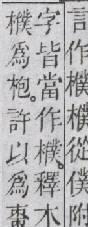 言作樸樸從僕附
字皆當作樸釋木
樸爲枹。許以爲棗